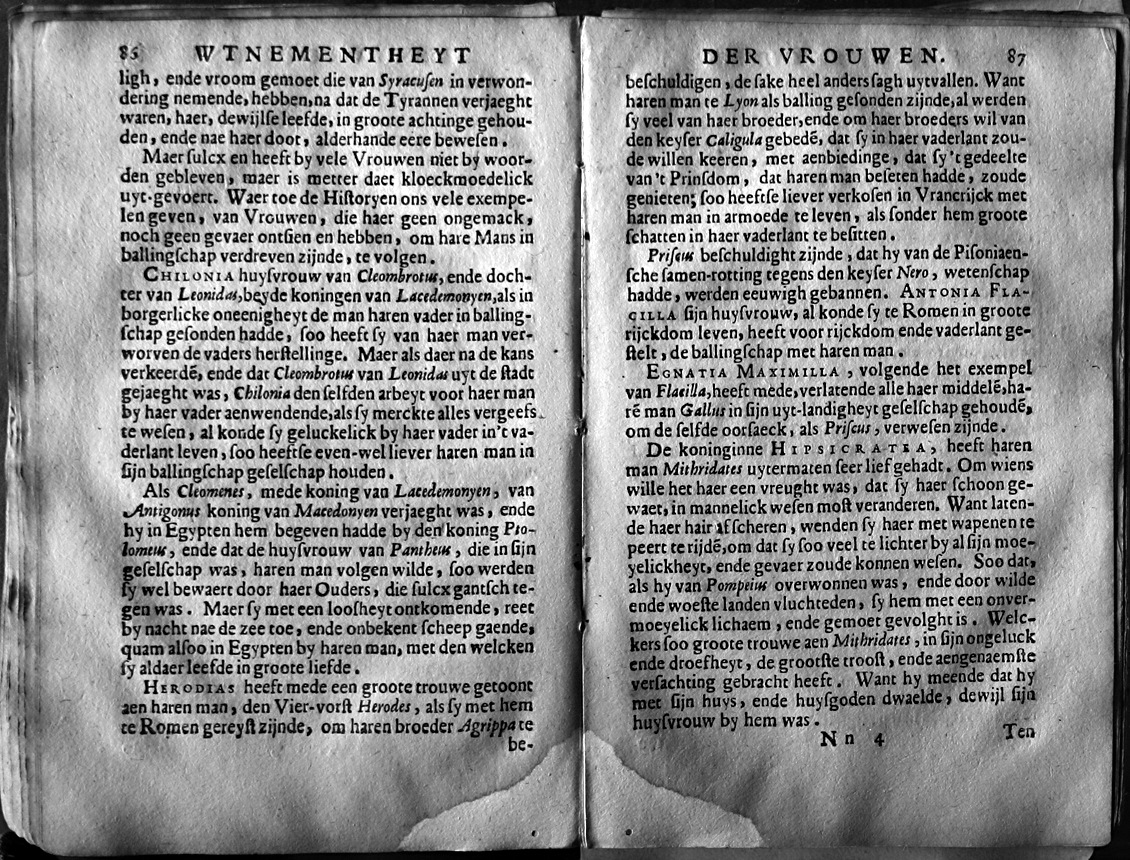 86 WTNEMENTHEYT
ligh, ende vroom gemoet die van Syracusen in verwon-
dering nemende, hebben, na dat de Tyrannen verjaeght
waren, haer, dewijlse leefde, in groote achtinge gehou-
den, ende nae haer doot, alderhande eere bewesen.
Maer sulcx en heeft by vele Vrouwen niet by woor-
den gebleven, maer is metter daet kloeckmoedelick
uyt-gevoert. Waer toe de Historyen ons vele exempe-
len geven, van Vrouwen, die haer geen ongemack,
noch geen gevaer ontsien en hebben, om hare Mans in
ballingschap verdreven zijnde, te volgen.
CHILONIA huysvrouw van Cleombrotus, ende doch-
ter van Leonidas, beyde koningen van Lacedemonyen, als in
borgerlicke oneenigheyt de man haren vader in balling-
schap gesonden hadde, soo heeft sy van haer man ver-
worven de vaders herstellinge. Maer als daer na de kans
verkeerdē, ende dat Cleombrotus van Leonidas uyt de stadt
gejaeght was, Chilonia den selfden arbeyt voor haer man
by haer vader aenwendende, als sy merckte alles vergeefs
te wesen, al konde sy geluckelick by haer vader in't va-
derlant leven, soo heeftse even-wel liever haren man in
sijn ballingschap geselschap houden.
Als Cleomenes, mede koning van Lacedemonyen, van
Antigonus koning van Macedonyen verjaeght was, ende
hy in Egypten hem begeven hadde by den koning Pto-
lomeus, ende dat de huysvrouw van Pantheus, die in sijn
geselschap was, haren man volgen wilde, soo werden
sy wel bewaert door haer Ouders, die sulcx gantsch te-
gen was. Maer sy met een loosheyt ontkomende, reet
by nacht nae de zee toe, ende onbekent scheep gaende,
quam alsoo in Egypten by haren man, met den welcken
sy aldaer leefde in groote liefde.
HERODIAS heeft mede een groote trouwe getoont
aen haren man, den Vier-vorst Herodes, als sy met hem
te Romen gereyst zijnde, om haren broeder Agrippa te
be-
DER VROUWEN. 87
beschuldigen, de sake heel anders sagh uytvallen. Want
haren man te Lyon als balling gesonden zijnde, al werden
sy veel van haer broeder, ende om haer broeders wil van
den keyser Caligula gebedē, dat sy in haer vaderlant zou-
de willen keeren, met aenbiedinge, dat sy 't gedeelte
van 't Prinsdom, dat haren man beseten hadde, zoude
genieten; soo heeftse liever verkosen in Vrancrijck met
haren man in armoede te leven, als sonder hem groote
schatten in haer vaderlant te besitten.
Priscus beschuldight zijnde, dat hy van de Pisoniaen-
sche samen-rotting tegens den keyser Nero, wetenschap
hadde, werden eeuwigh gebannen. ANTONIA FLA-
CILLA sijn huysvrouw, al konde sy te Romen in groote
rijckdom leven, heeft voor rijckdom ende vaderlant ge-
stelt, de ballingschap met haren man.
EGNATIA MAXIMILLA, volgende het exempel
van Flacilla, heeft mede, verlatende alle haer middelē, ha-
rē man Gallus in sijn uyt-landigheyt geselschap gehoudē,
om de selfde oorsaeck, als Priscus, verwesen zijnde.
De koninginne HIPSICRATEA, heeft haren
man Mithridates uytermaten seer lief gehadt. Om wiens
wille het haer een vreught was, dat sy haer schoon ge-
waet, in mannelick wesen most veranderen. Want laten-
de haer hair afscheren, wenden sy haer met wapenen te
peert te rijdē, om dat sy soo veel te lichter by al sijn moe-
yelickheyt, ende gevaer zoude konnen wesen. Soo dat,
als hy van Pompeius overwonnen was, ende door wilde
ende woeste landen vluchteden, sy hem met een onver-
moeyelick lichaem, ende gemoet gevolght is. Welc-
kers soo groote trouwe aen Mithridates, in sijn ongeluck
ende droefheyt, de grootste troost, ende aengenaemste
versachting gebracht heeft. Want hy meende dat hy
met sijn huys, ende huysgoden dwaelde, dewijl sijn
huysvrouw by hem was.
Nn 4 Ten